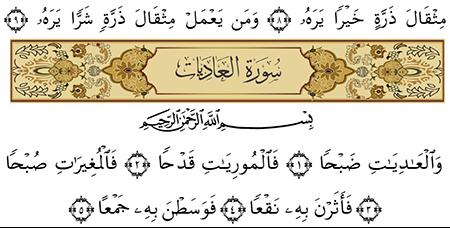 مِثْقَالَ ذَرَّةٍ خَيْرًا يَرَهُۥ ﴿٨﴾ وَمَن يَعْمَلْ مِثْقَالَ ذَرَّةٍ شَرًّا يَرَهُۥ ﴿٩﴾
سُورَةُ العَادِيَاتِ
بِسْمِ اللَّهِ الرَّحْمَٰنِ الرَّحِيمِ
وَالْعَـٰدِيَـٰتِ ضَبْحًا ﴿١﴾ فَالْمُورِيَـٰتِ قَدْحًا ﴿٢﴾ فَالْمُغِيرَٰتِ صُبْحًا
﴿٣﴾ فَأَثَرْنَ بِهِۦ نَقْعًا ﴿٤﴾ فَوَسَطْنَ بِهِۦ جَمْعًا ﴿٥﴾